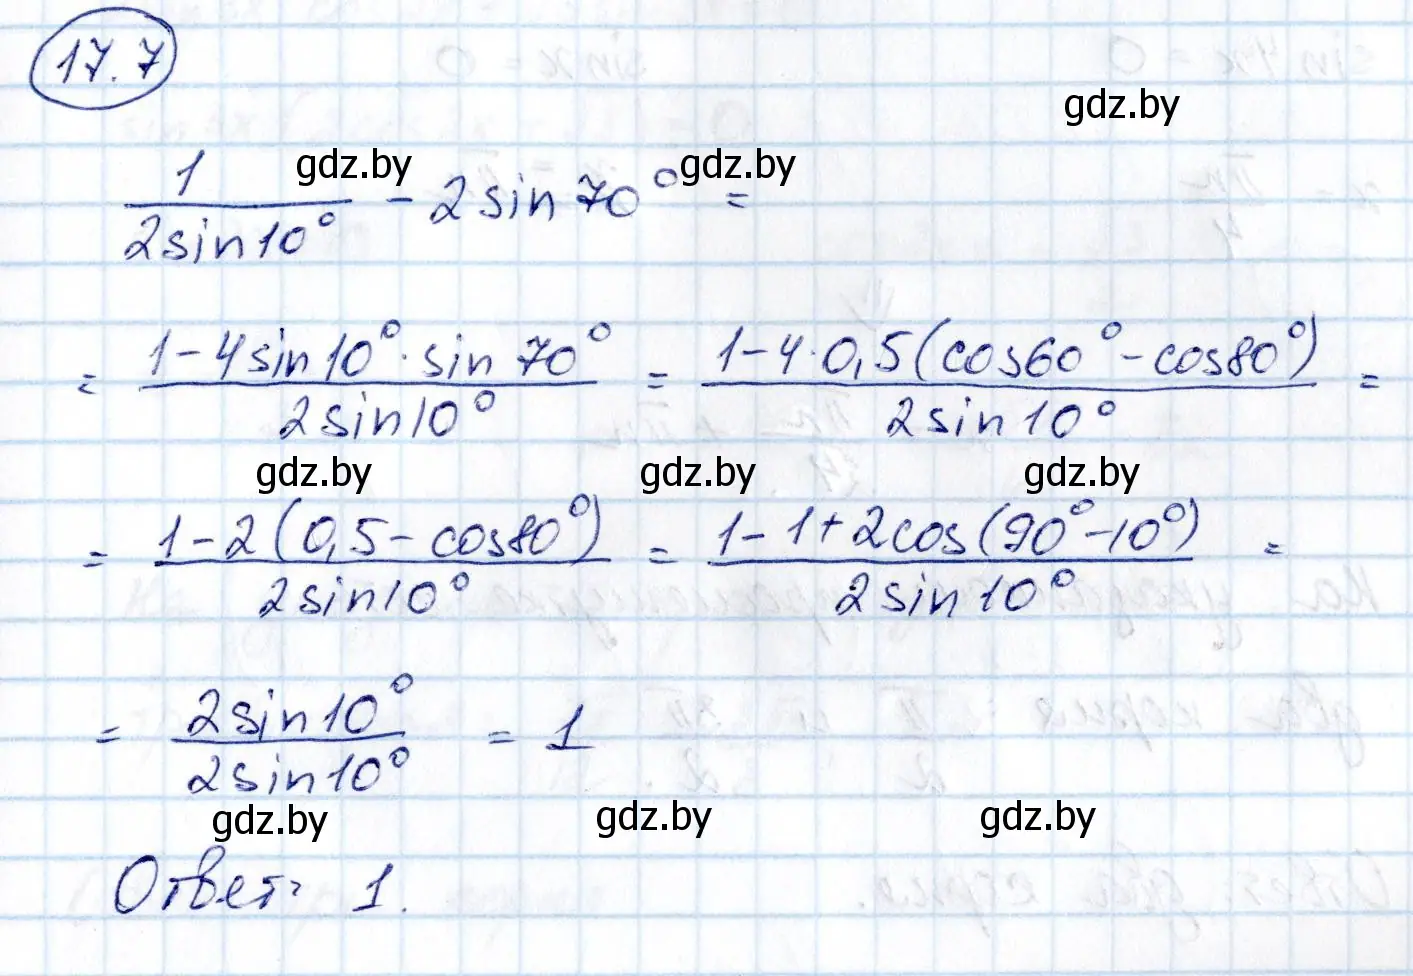 17.7
gdz.by
gdz.by gdz.by
1/(2sin10°) - 2sin70° =
= (1-4sin10°·sin70°)/(2sin10°) = (1-4·0,5(cos60°-cos80°))/(2sin10°) =
gdz.by gdz.by gdz.by
= (1-2(0,5-cos80°))/(2sin10°) = (1-1+2cos(90°-10°))/(2sin10°) =
= (2sin10°)/(2sin10°) = 1
gdz.by gdz.by gdz.by
Ответ: 1.